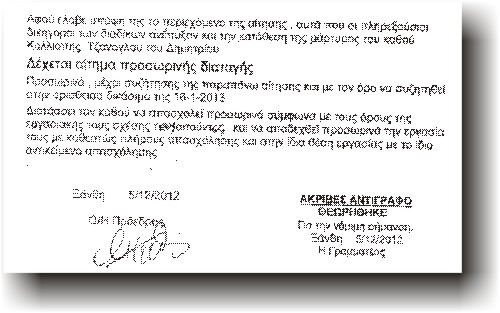 Αφού έλαβε υπόψη της το περιεχόμενο της αίτησης , αυτά που οι πληρεξούσιοι
δικηγόροι των διαδίκων ανέπτυξαν και την κατάθεση της μάρτυρος του καθού
Καλλιόπης Τζανόγλου του Δημητρίου
Δέχεται αίτημα προσωρινής διαταγής
Προσωρινά , μέχρι συζήτησης της παραπάνω αίτησης και με τον όρο να συζητηθεί
στην ορισθείσα δικάσιμο της 16-1-2013
Διατάσσει τον καθού να απασχολεί προσωρινά σύμφωνα με τους όρους της
εργασιακής τους σχέσης τους αιτούντες και να αποδεχθεί προσωρινά την εργασία
τους με καθεστώς πλήρους απασχόλησης και στην ίδια θέση εργασίας με το ίδιο
αντικείμενο απασχόλησης
Ξάνθη 5/12/2012
Ο/Η Πρόεδρος
ΑΚΡΙΒΕΣ ΑΝΤΙΓΡΑΦΟ
ΘΕΩΡΗΘΗΚΕ
Για την νόμιμη σήμανση,
Ξάνθη 5/12/2012
Η Γραμματέας